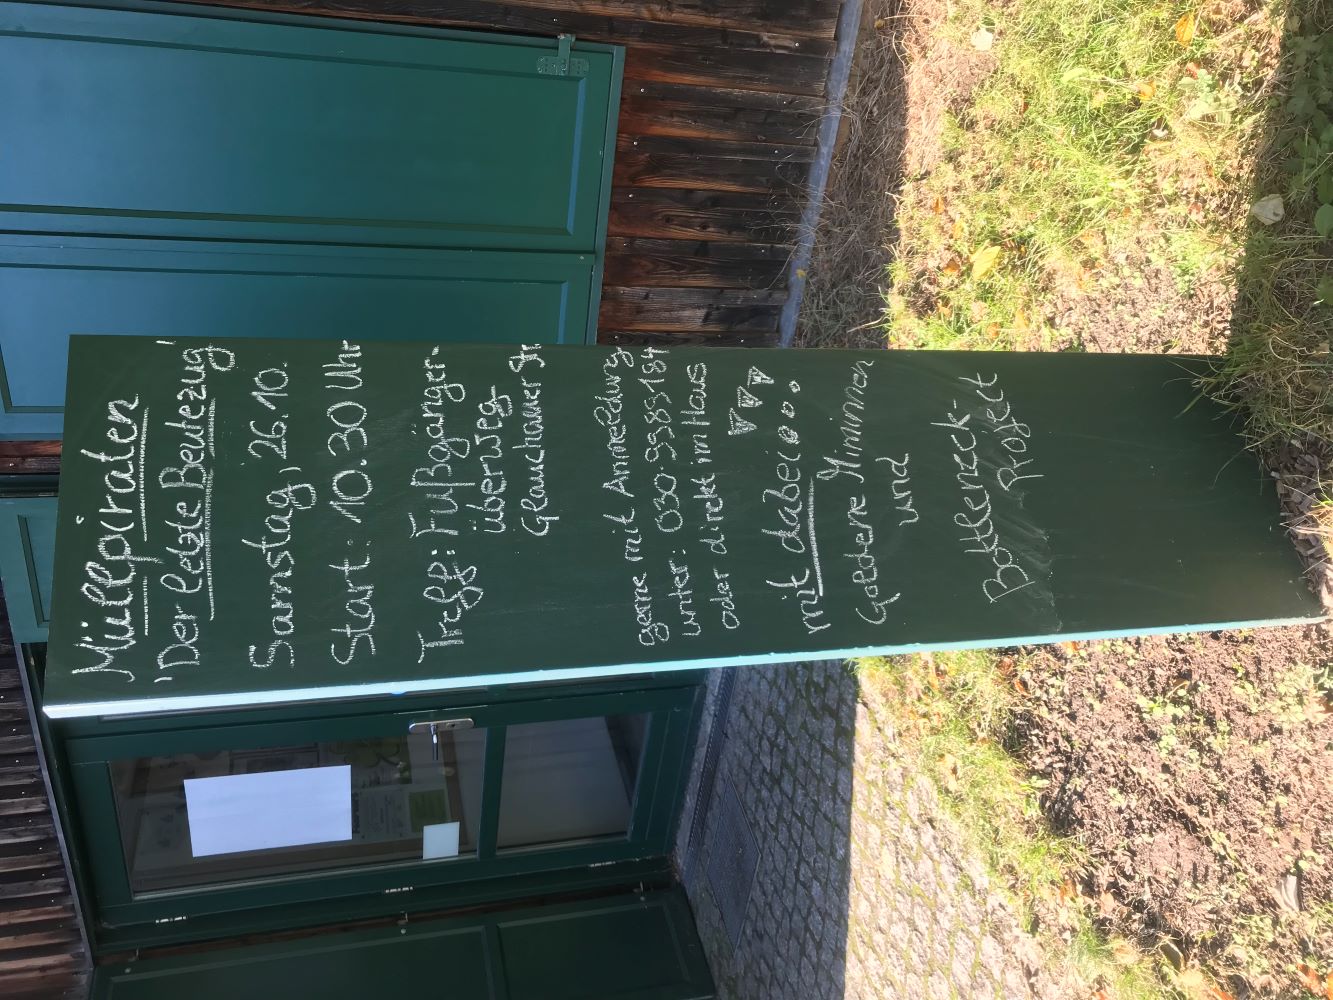 Müllpiraten
"Der letzte Beutezug"
Samstag, 26.10.
Start: 10.30 Uhr
Treff: Fußgänger-
überweg
Glauchauer Str
gerne mit Anmeldung
unter: 030-9989184
oder direkt im Haus
mit dabei...
Goldene Miminch
und
Bottleneck-
Projekt